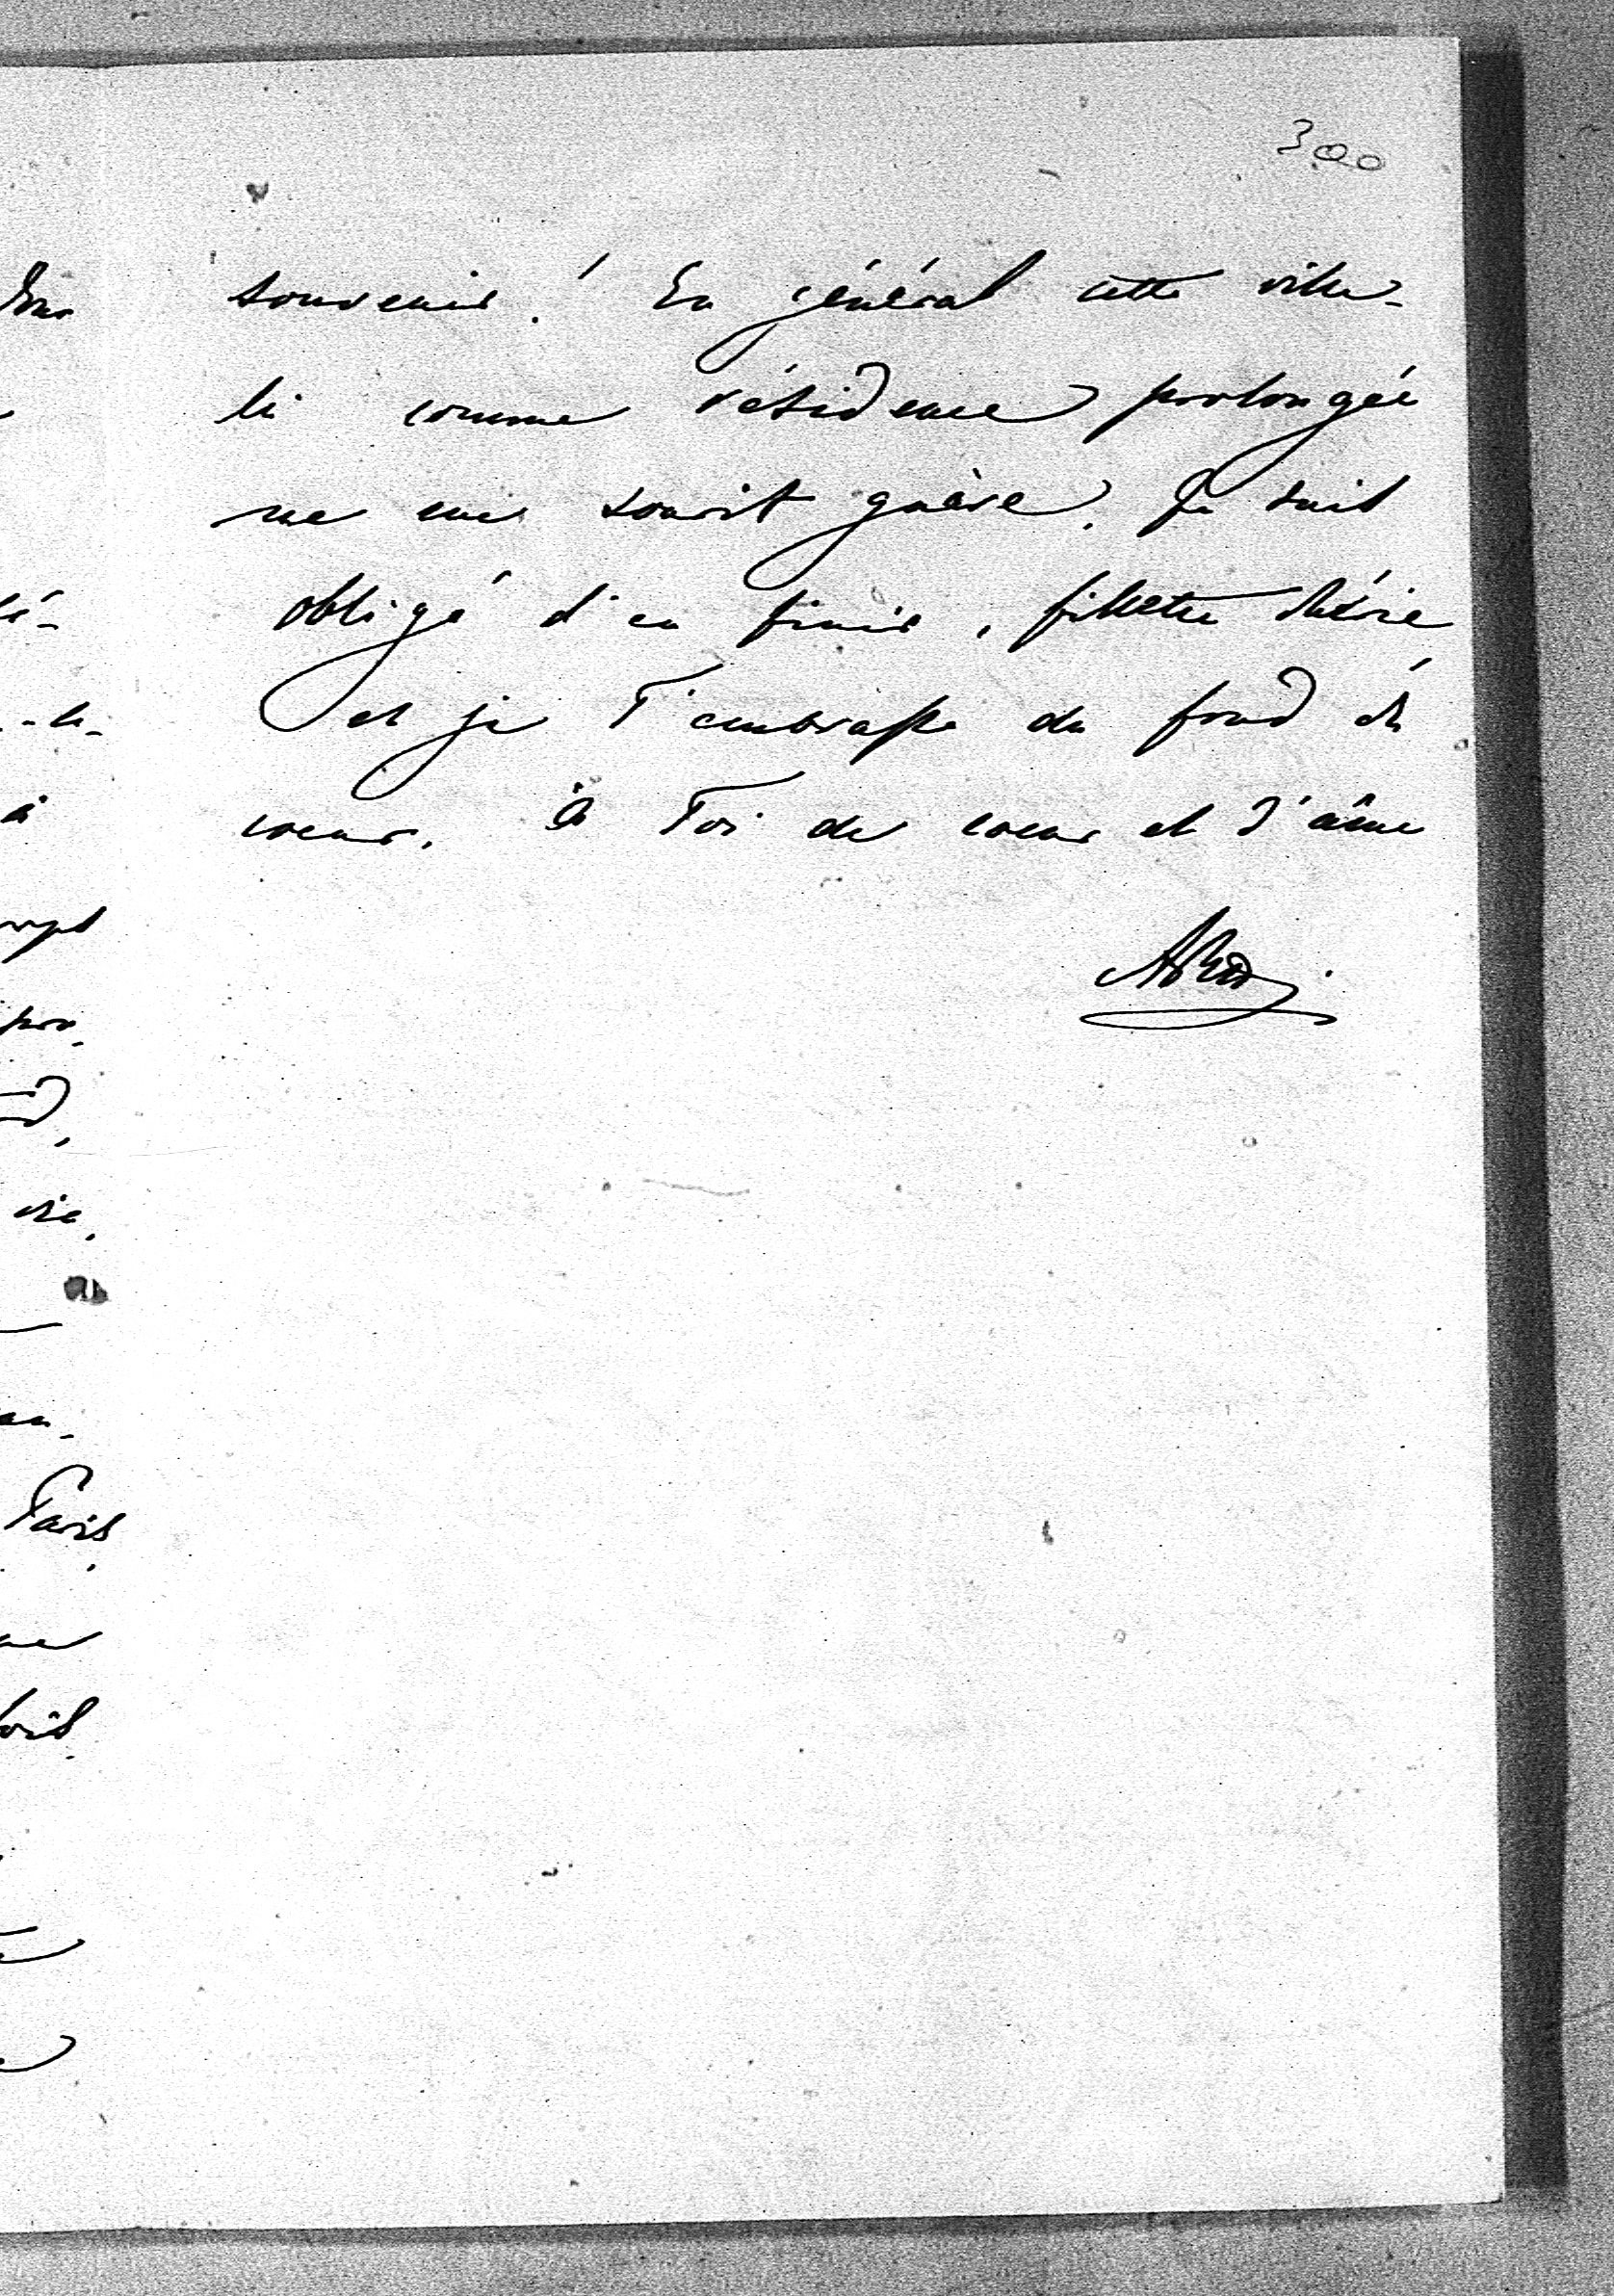 300
souvenir! En général cette ville-
là comme résidence prolongée
ne me sourit guère. Je suis
obligé d'en finir, fillette chérie
et je T'embrasse du fond du
coeur. à Toi de coeur et d'âme
Paris